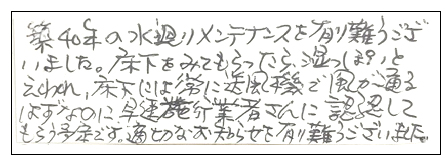 築40年の水週りメンテナンスを有り難うござ
いました。床下をみてもらったら、湿っぽいと
云われ、床下には常に送風機で風が通る
はずなのに早速施行業者さんに認認して
もらう予定です。適切なお知らせを有り難うございました。